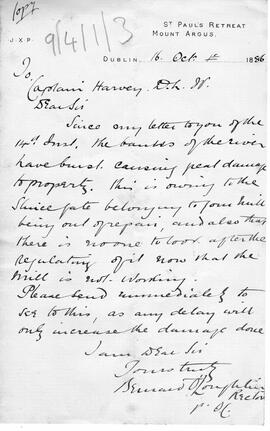 Copy
9/4/1/3
St Paul's Retreat
J.X.P.
Mount Argus,
Dublin, 16 Oct 1886
To,
Captain Harvey
Dear Sir
Since my letter to you of the
14th Inst. the banks of the river
have burst causing great damage
to property. this is owing to the
Sluice gate belonging to your mill
being out of repair, and also that
there is no one to look after the
regulating of it now that the
Mill is not working.
Please send immediately to
see to this, as any delay will
only increase the damage done
I am Dear Sir
Yours truly
Bernard O'Loughlin
Rector